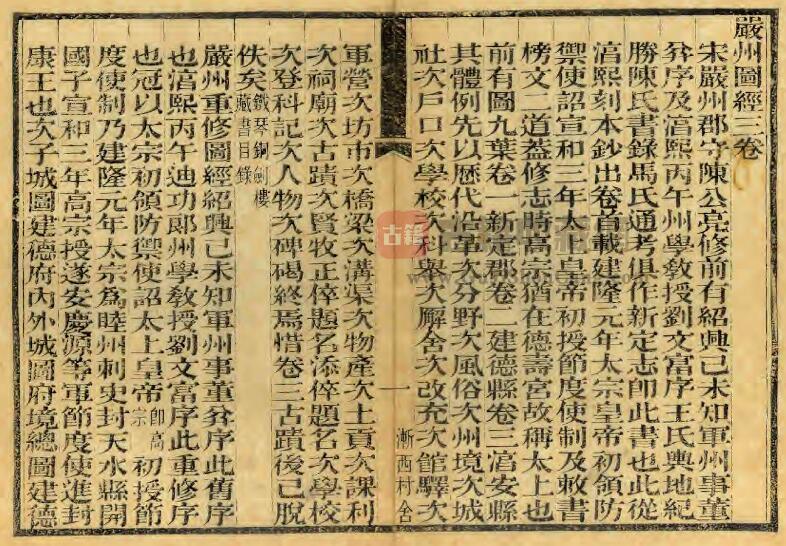 嚴州圖經三卷
宋嚴州郡守陳公亮修前有紹興己未知軍州事董
弅序及淳熙丙午州學教授劉文富序王氏輿地紀
勝陳氏書錄馬氏通考俱作新定志卽此書也此從
淳熙刻本鈔出卷首載建隆元年太宗皇帝初領防
禦使詔宣和三年太上皇帝初授節度使制及敕書
榜文二道蓋修志時高宗猶在德壽宮故稱太上也
前有圖九葉卷一新定郡卷二建德縣卷三淳安縣
其體例先以歷代沿革次分野次風俗次州境次城
社次戶口次學校次科舉次廨舍次改充次館驛次
漸西村舍
一
軍營次坊市次橋梁次溝渠次物產次土貢次課利
次祠廟次古蹟次賢牧正倅題名添倅題名次學校
次登科記次人物次碑碣終焉惜卷三古蹟後已脫
佚矣鐵琴銅劍樓藏書目錄
嚴州重修圖經紹興己未知軍州事董弅序此舊序
也淳熙丙午迪功郎州學教授劉文富序此重修序
也冠以太宗初領防禦使詔太上皇帝卽高宗初授節
度使制乃建隆元年太宗爲睦州刺史封天水縣開
國子宣和三年高宗授遂安慶源等軍節度使進封
康王也次子城圖建德府內外城圖府境總圖建德
古籍